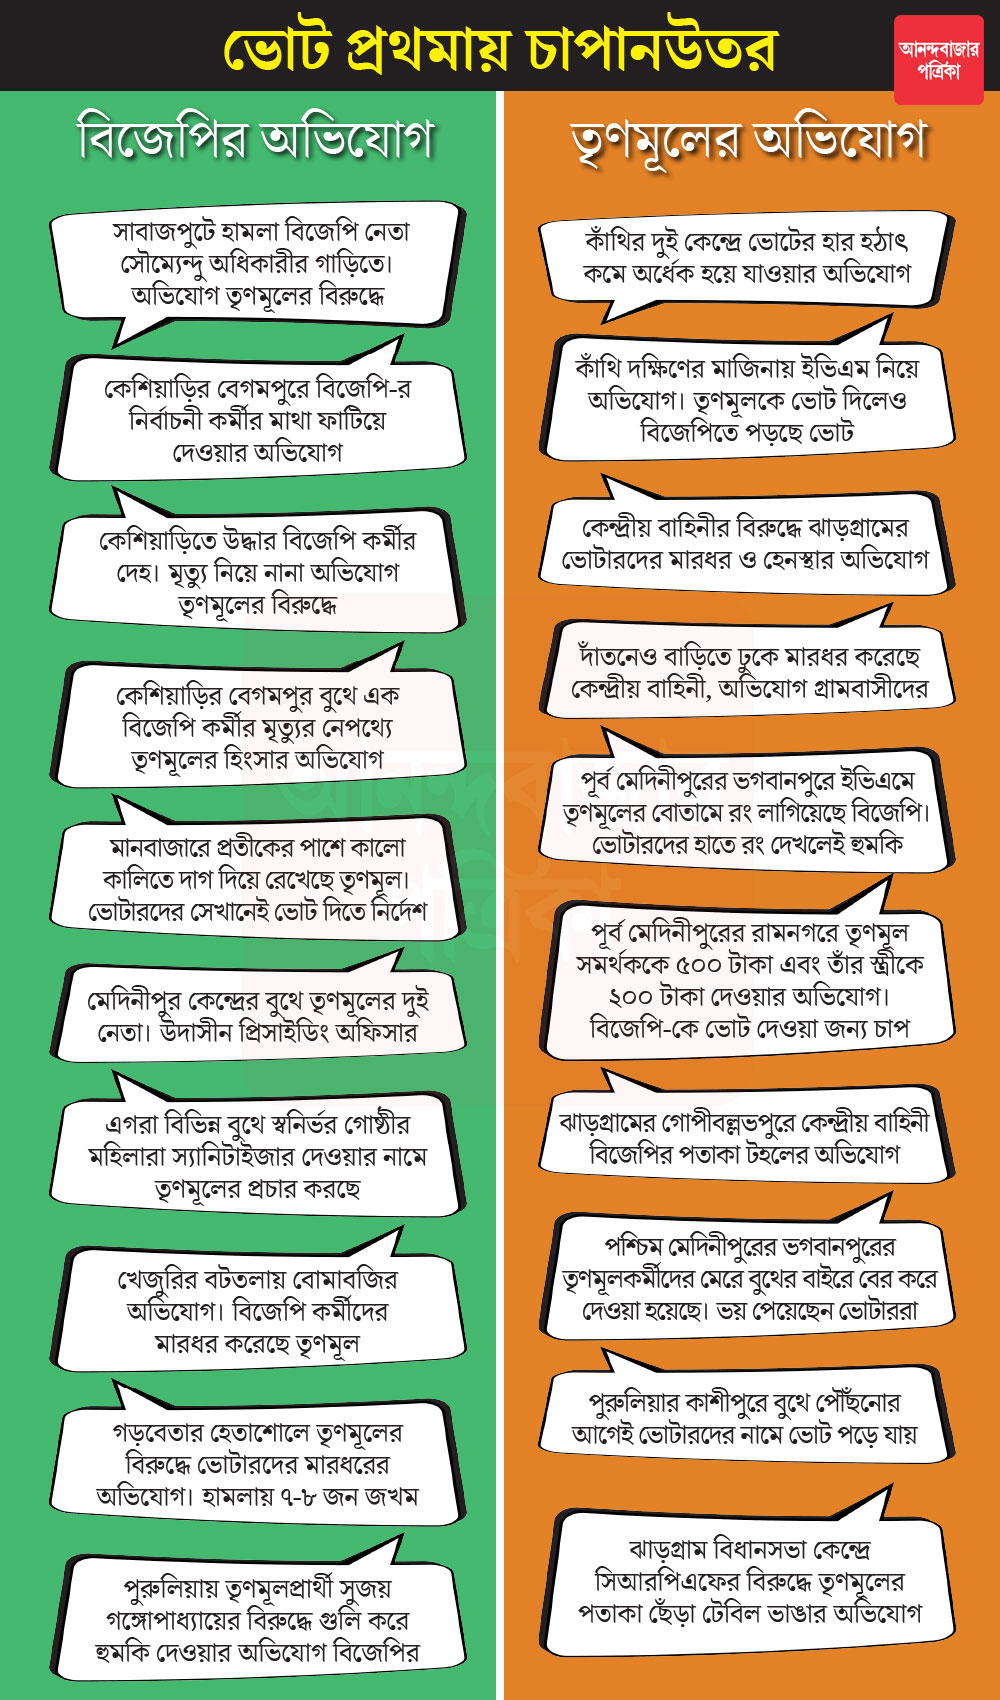 ভোট প্রথমায় চাপানউতর
আনন্দবাজার
পত্রিকা
বিজেপির অভিযোগ
সাবাজপুটে হামলা বিজেপি নেতা
সৌম্যেন্দু অধিকারীর গাড়িতে।
অভিযোগ তৃণমূলের বিরুদ্ধে
কেশিয়াড়ির বেগমপুরে বিজেপি-র
নির্বাচনী কর্মীর মাথা ফাটিয়ে
দেওয়ার অভিযোগ
কেশিয়াড়িতে উদ্ধার বিজেপি কর্মীর
দেহ। মৃত্যু নিয়ে নানা অভিযোগ
তৃণমূলের বিরুদ্ধে
কেশিয়াড়ির বেগমপুর বুথে এক
বিজেপি কর্মীর মৃত্যুর নেপথ্যে
তৃণমূলের হিংসার অভিযোগ
মানবাজারে প্রতীকের পাশে কালো
কালিতে দাগ দিয়ে রেখেছে তৃণমূল।
ভোটারদের সেখানেই ভোট দিতে নির্দেশ
মেদিনীপুর কেন্দ্রের বুথে তৃণমূলের দুই
নেতা। উদাসীন প্রিসাইডিং অফিসার
এগরা বিভিন্ন বুথে স্বনির্ভর গোষ্ঠীর
মহিলারা স্যানিটাইজার দেওয়ার নামে
তৃণমূলের প্রচার করছে
খেজুরির বটতলায় বোমাবজির
অভিযোগ। বিজেপি কর্মীদের
মারধর করেছে তৃণমূল
গড়বেতার হেতাশোলে তৃণমূলের
বিরুদ্ধে ভোটারদের মারধরের
অভিযোগ। হামলায় ৭-৮ জন জখম
পুরুলিয়ায় তৃণমূলপ্রার্থী সুজয়
গঙ্গোপাধ্যায়ের বিরুদ্ধে গুলি করে
হুমকি দেওয়ার অভিযোগ বিজেপির
তৃণমূলের অভিযোগ
কাঁথির দুই কেন্দ্রে ভোটের হার হঠাৎ
কমে অর্ধেক হয়ে যাওয়ার অভিযোগ
কাঁথি দক্ষিণের মাজিনায় ইভিএম নিয়ে
অভিযোগ। তৃণমূলকে ভোট দিলেও
বিজেপিতে পড়ছে ভোট
কেন্দ্রীয় বাহিনীর বিরুদ্ধে ঝাড়গ্রামের
ভোটারদের মারধর ও হেনস্থার অভিযোগ
দাঁতনেও বাড়িতে ঢুকে মারধর করেছে
কেন্দ্রীয় বাহিনী, অভিযোগ গ্রামবাসীদের
পূর্ব মেদিনীপুরের ভগবানপুরে ইভিএমে
তৃণমূলের বোতামে রং লাগিয়েছে বিজেপি।
ভোটারদের হাতে রং দেখলেই হুমকি
পূর্ব মেদিনীপুরের রামনগরে তৃণমূল
সমর্থককে ৫০০ টাকা এবং তাঁর স্ত্রীকে
২০০ টাকা দেওয়ার অভিযোগ।
বিজেপি-কে ভোট দেওয়া জন্য চাপ
ঝাড়গ্রামের গোপীবল্লভপুরে কেন্দ্রীয় বাহিনী
বিজেপির পতাকা টহলের অভিযোগ
পশ্চিম মেদিনীপুরের ভগবানপুরের
তৃণমূলকর্মীদের মেরে বুথের বাইরে বের করে
দেওয়া হয়েছে। ভয় পেয়েছেন ভোটাররা
পুরুলিয়ার কাশীপুরে বুথে পৌঁছনোর
আগেই ভোটারদের নামে ভোট পড়ে যায়
ঝাড়গ্রাম বিধানসভা কেন্দ্রে
সিআরপিএফের বিরুদ্ধে তৃণমূলের
পতাকা ছেঁড়া টেবিল ভাঙার অভিযোগ